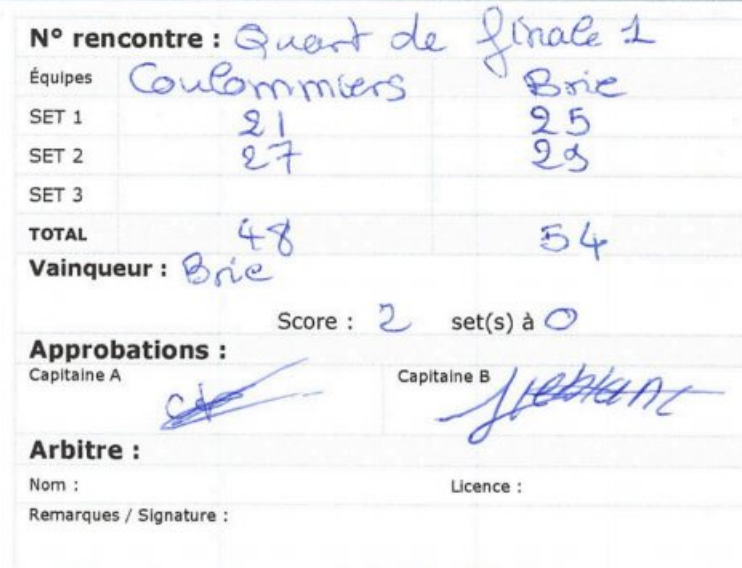 N° rencontre : Quart de finale 1
Équipes Coulommiers Brie
SET 1 21 25
SET 2 27 29
SET 3
TOTAL 48 54
Vainqueur : Brie
Score : 2 set(s) à 0
Approbations :
Capitaine A Capitaine B
Arbitre :
Nom : Licence :
Remarques / Signature :